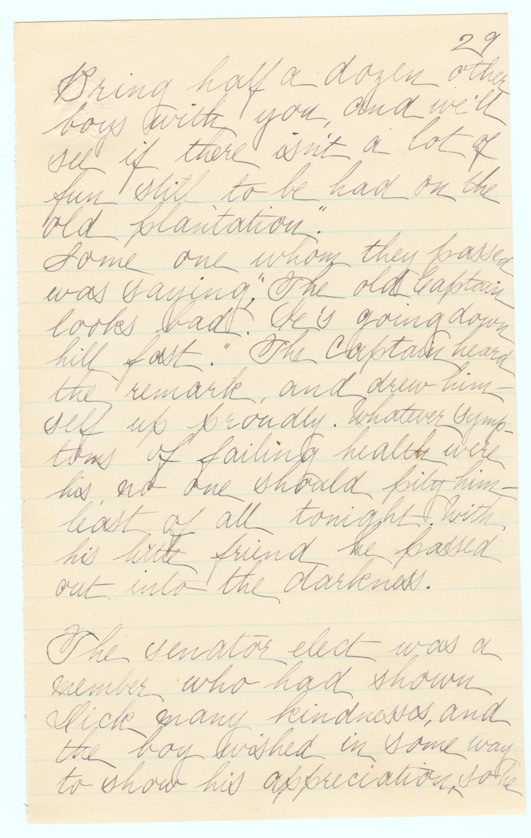 29
Bring half a dozen other
boys with you, and we'll
see if there isn't a lot of
fun still to be had on the
old plantation."
Some one whom they passed
was saying, "The old Captain
looks bad. He's going down
hill fast." The Captain heard
the remark, and drew him-
self up proudly. Whatever symp-
toms of failing health were
his, no one should pity him-
least of all tonight. With
his little friend he passed
out into the darkness.
The senator elect was a
member who had shown
Dick many kindnesses, and
the boy wished in some way
to show his appreciation, so he